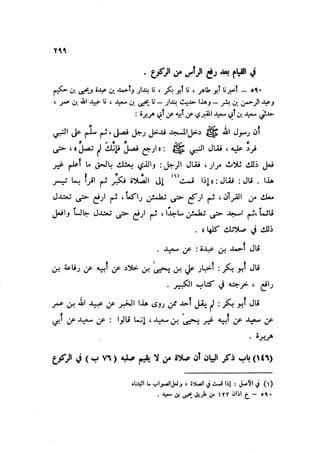 ٢٩٩
في القيام بعد رفع الرأس من الركوع .
٥٩٠ – أخبرنا أبو طاهر ، نا أبو بكر ، نا بندار وأحمد بن عبدة ويحيى بن حكيم
وعبد الرحمن بن بشر – وهذا حديث بندار – نا يحيى بن سعيد ، نا عبيد الله بن عمر ،
حدثني سعيد بن أبي سعيد المقبري عن أبيه عن أبي هريرة :
أن رسول الله ﷺ دخل المسجد فدخل رجل فصلى ، ثم سلم على النبي
فرد عليه ، فقال النبي ﷺ : « ارجع فصل فإنك لم تصل » ، حتى
فعل ذلك ثلاث مرار ، فقال الرجل : والذي بعثك بالحق ما أعلم غير
هذا . قال : فقال : « إذا قمت (١) إلى الصلاة فكبر ثم اقرأ بما تيسر
معك من القرآن ، ثم اركع حتى تطمئن راكعاً ، ثم ارفع حتى تعتدل
قائماً ، ثم اسجد حتى تطمئن ساجداً ، ثم ارفع حتى تعتدل جالساً وافعل
ذلك في صلاتك كلها » .
قال أحمد بن عبدة : عن سعيد .
قال أبو بكر : أخبار علي بن يحيى بن خلاد عن أبيه عن رفاعة بن
رافع ، خرجته في كتاب الكبير .
قال أبو بكر : لم يقل أحد ممن روى هذا الخبر عن عبيد الله بن عمر
عن سعيد عن أبيه غير يحيى بن سعيد ، إنما قالوا : عن سعيد عن أبي
هريرة .
(١٤٦) باب ذكر البيان أن صلاة من لا يقيم صلبه ( ٧٦ ب ) في الركوع
(١) في الأصل : إذا قمت في الصلاة ، ولعل الصواب ما أثبتناه
٥٩٠ – خ اذان ١٢٢ من طريق يحيى بن سعيد .